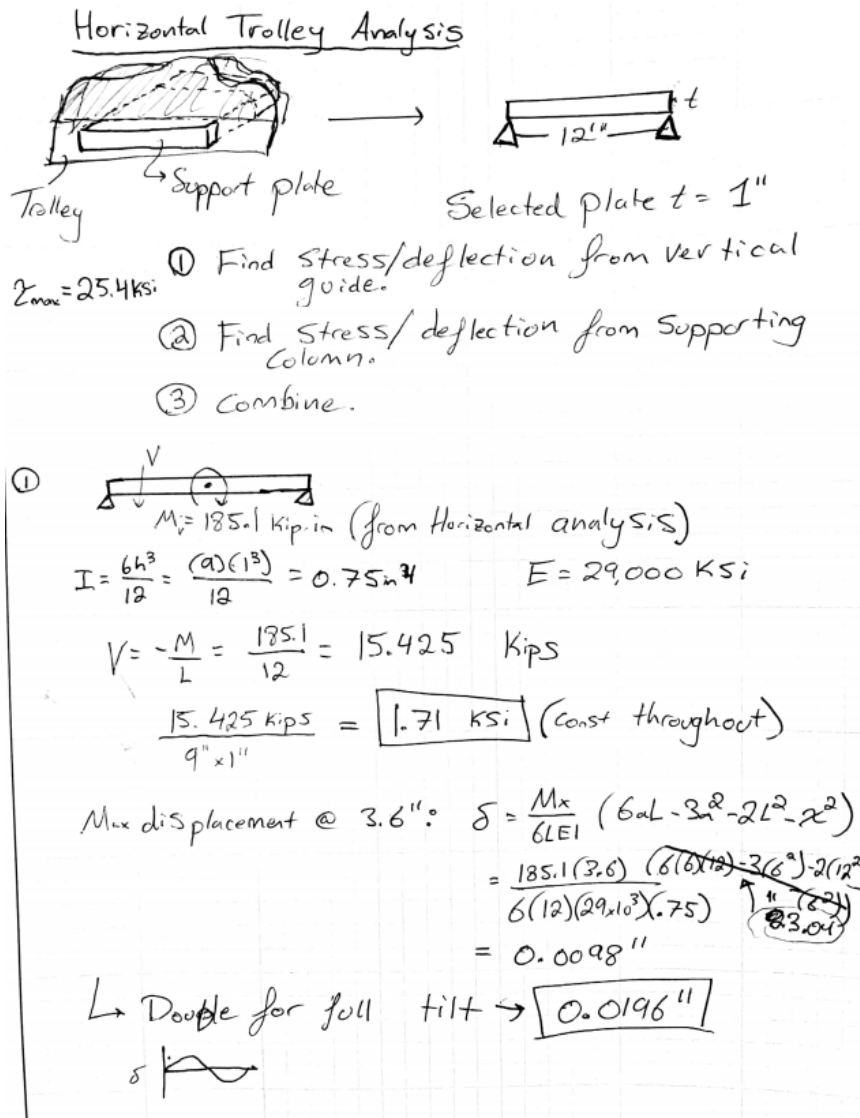 Horizontal Trolley Analysis
t
12"
Trolley
Support plate
Selected plate t = 1"
τmax = 25.4 ksi
① Find stress/deflection from vertical guide.
② Find stress/deflection from supporting column.
③ Combine.
①
V
Mv = 185.1 Kip.in (from Horizontal analysis)
I = bh³/12 = (9)(1³)/12 = 0.75 in⁴ E = 29,000 KSi
V = -M/L = 185.1/12 = 15.425 Kips
15.425 Kips / 9" x 1" = 1.71 KSi (const throughout)
Max displacement @ 3.6": δ = Mx/6LEI (6aL - 3a² - 2L² - x²)
= 185.1(3.6) (6(6)(12) - 3(6²) - 2(12²) - (6²)) / 6(12)(29x10³)(.75)
23.04
= 0.0098"
↳ Double for full tilt → 0.0196"
δ